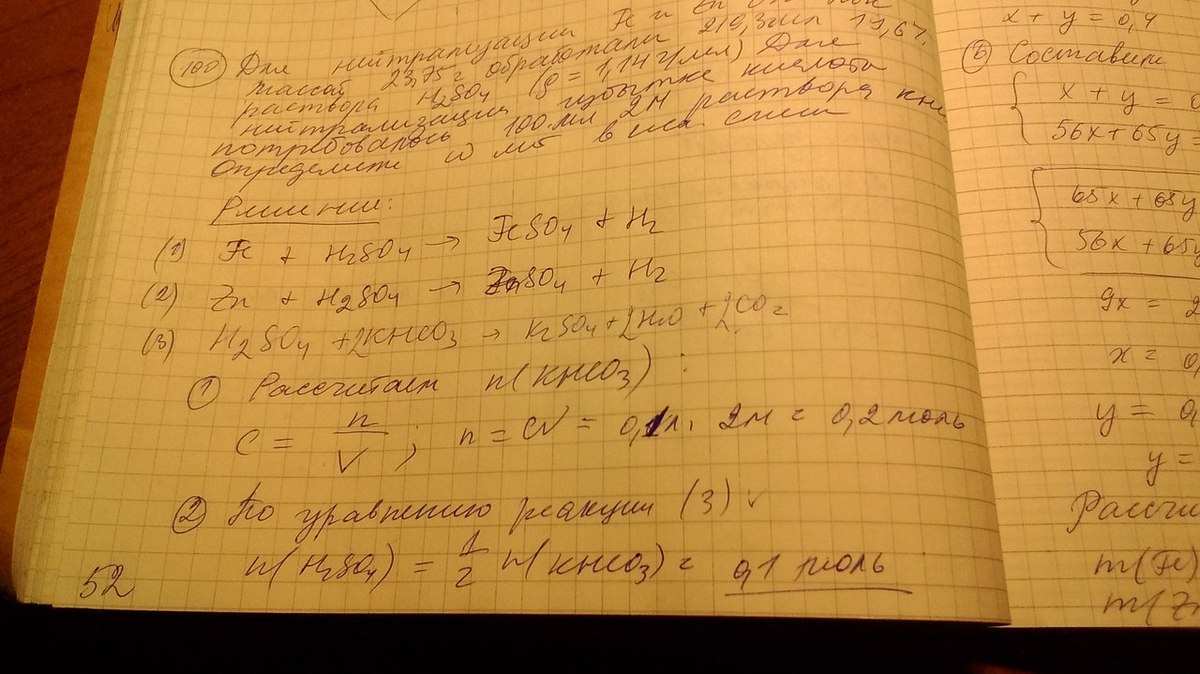 100 Для нейтрализации Fe и Zn
массой 23,75 г обработали 219,3 мл 19,6%
раствора H2SO4 (ρ = 1,14 г/мл) Для
нейтрализации избытка кислоты
потребовалось 100 мл 2М раствора
Определите ω ме в исх. смеси
Решение:
(1) Fe + H2SO4 → FeSO4 + H2
(2) Zn + H2SO4 → ZnSO4 + H2
(3) H2SO4 + 2KHCO3 → K2SO4 + 2H2O + 2CO2
① Рассчитаем n(KHCO3) :
C = n/V ; n = CV = 0,1л. 2М = 0,2 моль
② По уравнению реакции (3)
n(H2SO4) = 1/2 n(KHCO3) = 0,1 моль
52
x + y = 0,4
⑥ Составим
x + y =
56x + 65y =
65x + 65y
56x + 65y
9x = 2
x = 0,
y = 0,
y =
Рассчи
m(Fe)
m(Zn